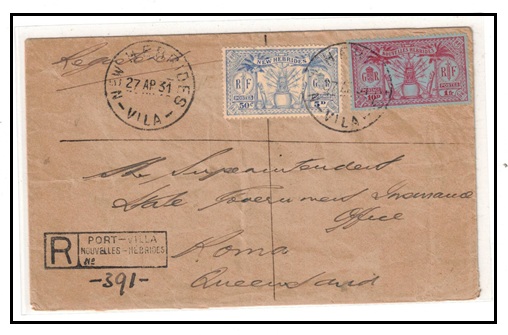 Registered
NEW HEBRIDES
27 AP 31
-VILA-
NEW HEBRIDES
R F
G R
POSTES
50c
5d
NOUVELLES HEBRIDES
G R
R F
10d
POSTES
1f
-VILA-
The Superintendent
State Government Insurance
Office
Roma
Queensland
R
PORT-VILLA
NOUVELLES-HÉBRIDES
No
-391-